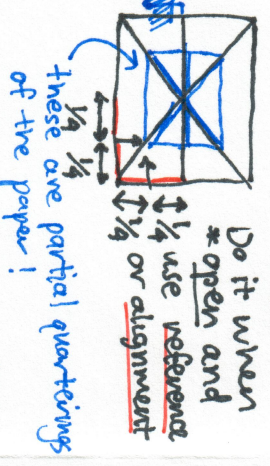 Do it when
*open and
1/4 use reference
1/4 or alignment
1/4 1/4
these are partial quarterings
of the paper!